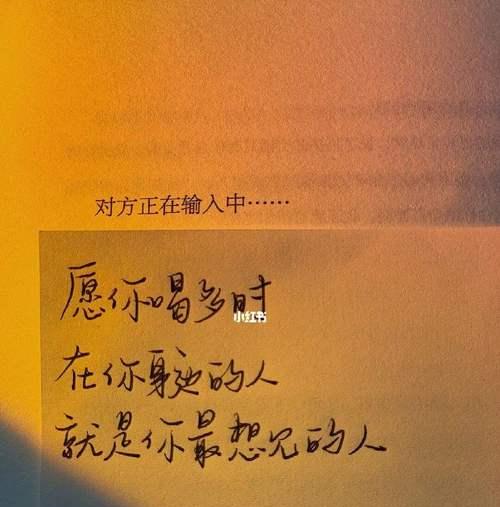 对方正在输入中……
愿你喝多时
小红书
在你身边的人
就是你最想见的人